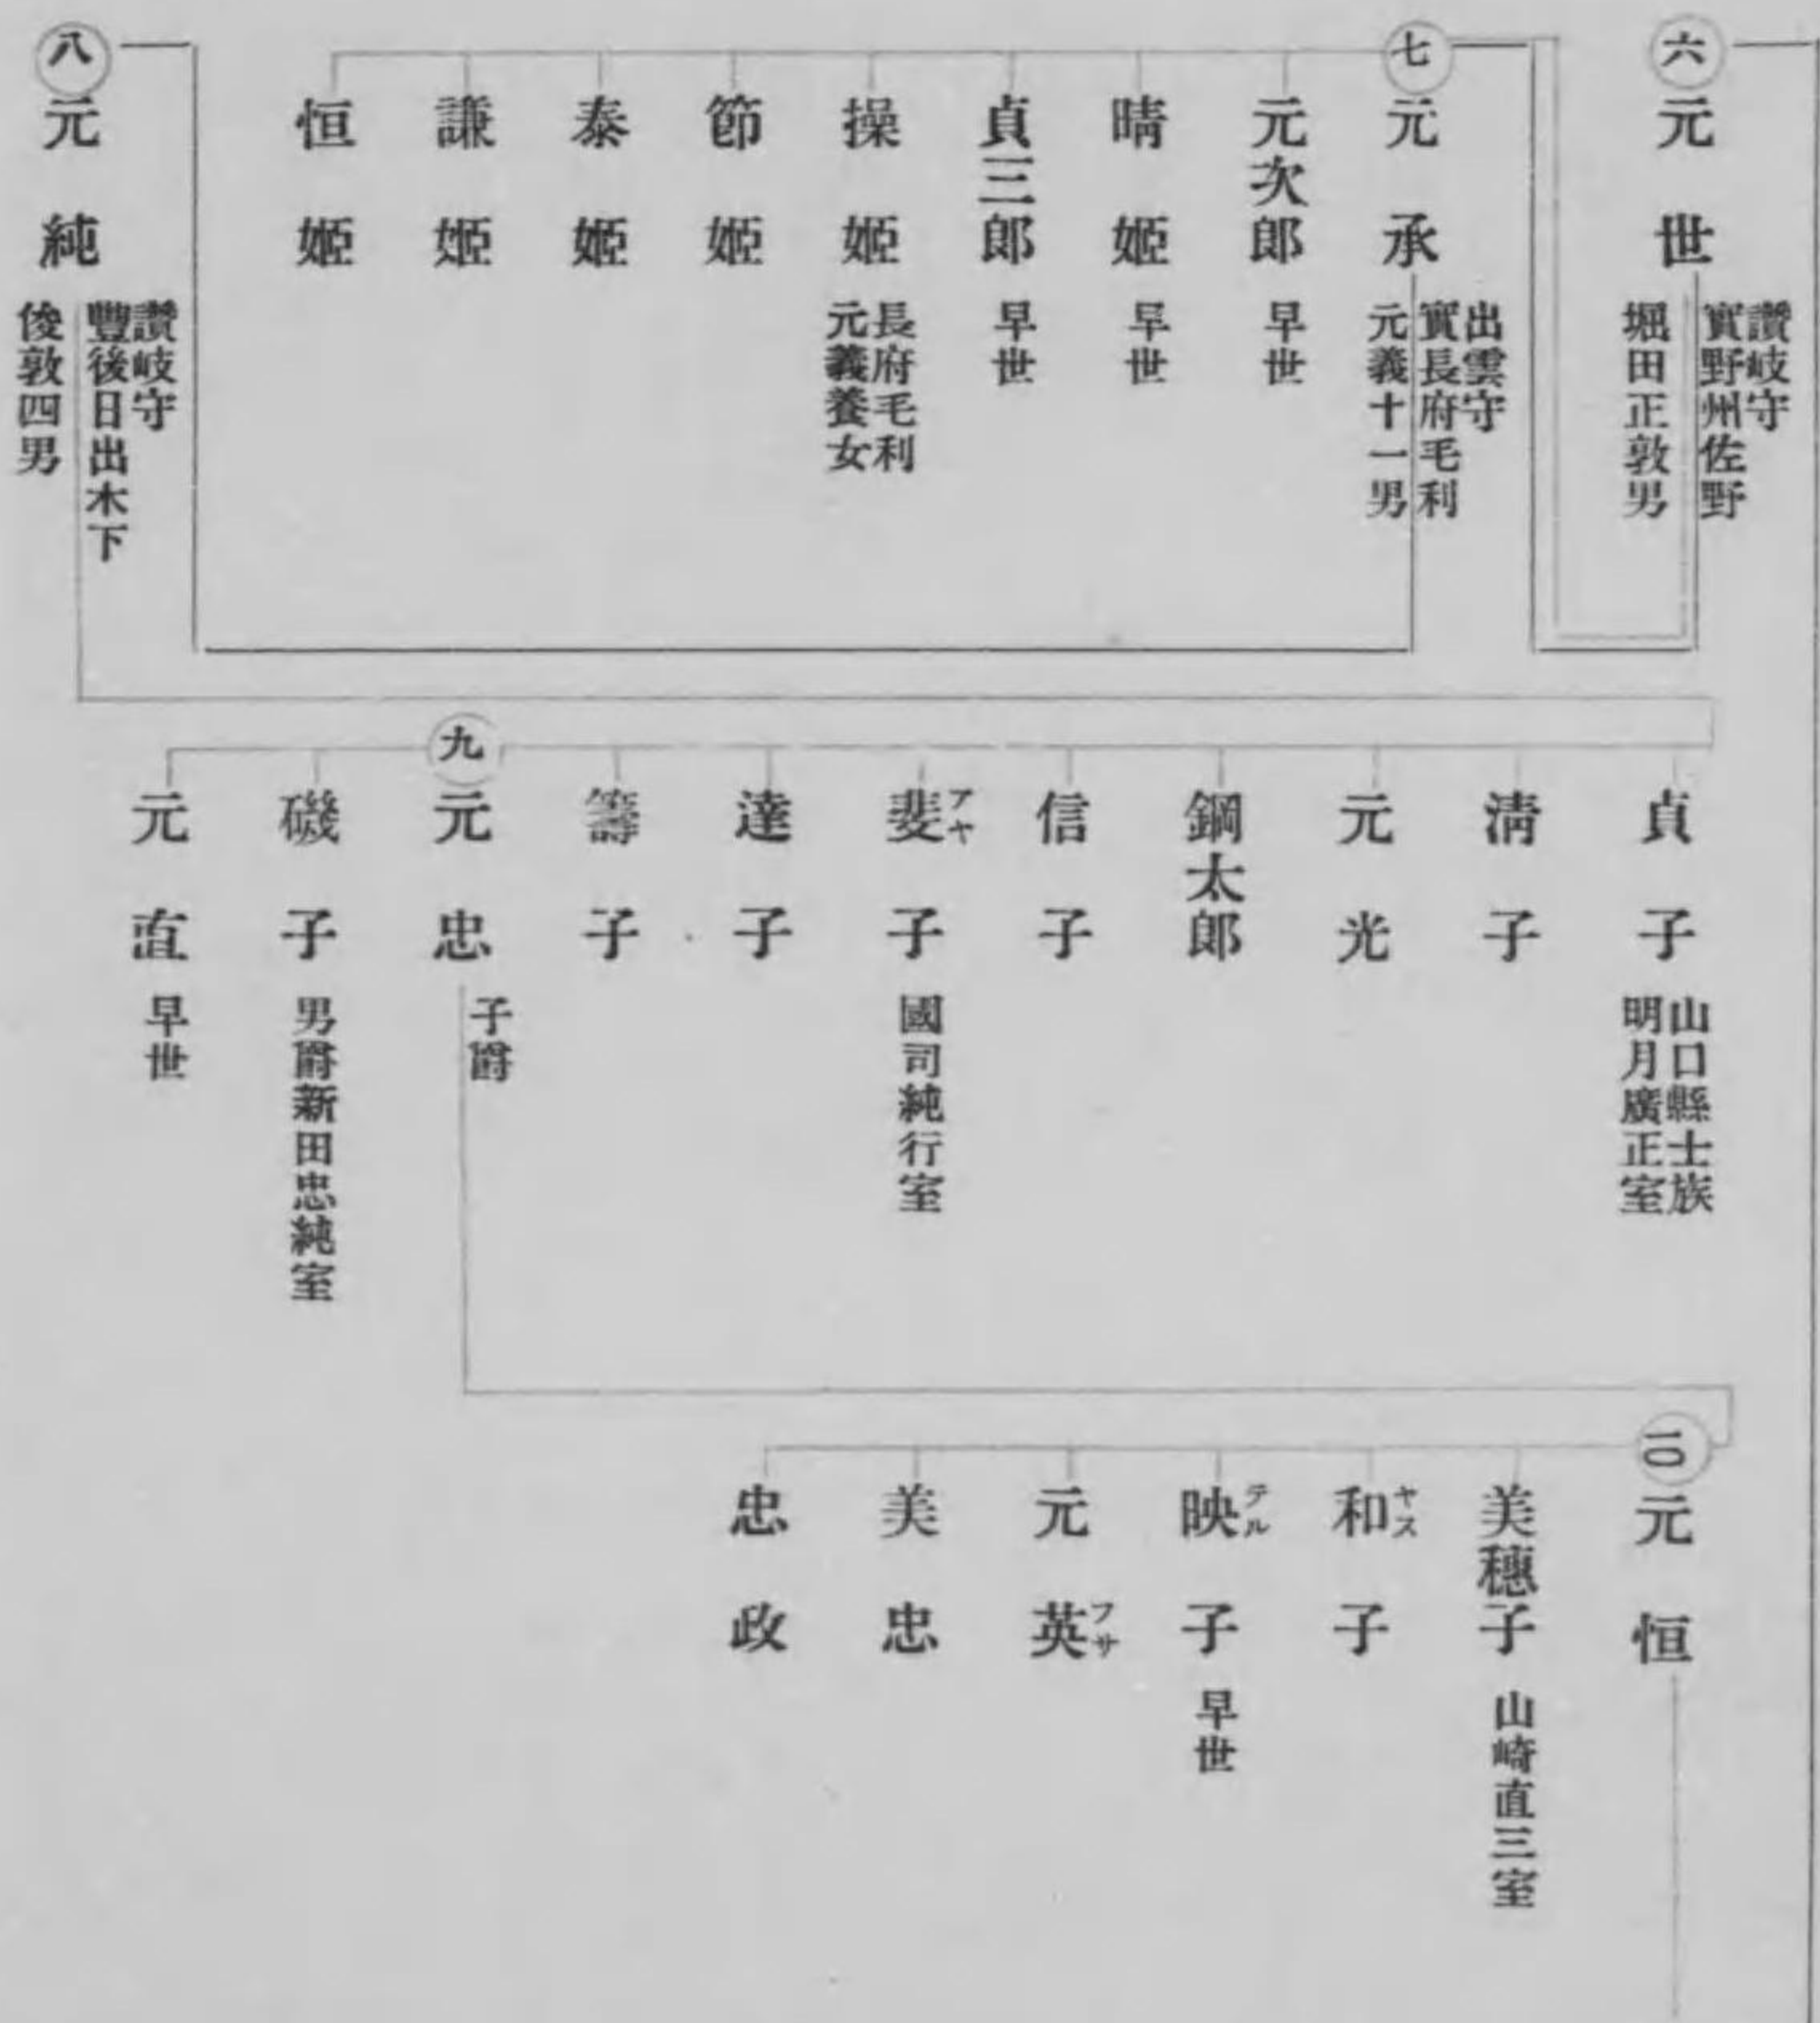 六
元世
讚岐守
實野州佐野
堀田正敦男
七
元承
出雲守
實長府毛利
元義十一男
元次郎
早世
晴姫
早世
貞三郎
早世
操姫
長府毛利
元義養女
節姫
泰姫
謙姫
恒姫
八
元純
讚岐守
豐後日出木下
俊敦四男
貞子
山口縣士族
明月廣正室
淸子
元光
鋼太郎
信子
斐子
アヤ
國司純行室
達子
籌子
九
元忠
子爵
磯子
男爵新田忠純室
元直
早世
一〇
元恒
美穗子
山崎直三室
和子
ヤス
映子
テル
早世
元英
フサ
美忠
忠政